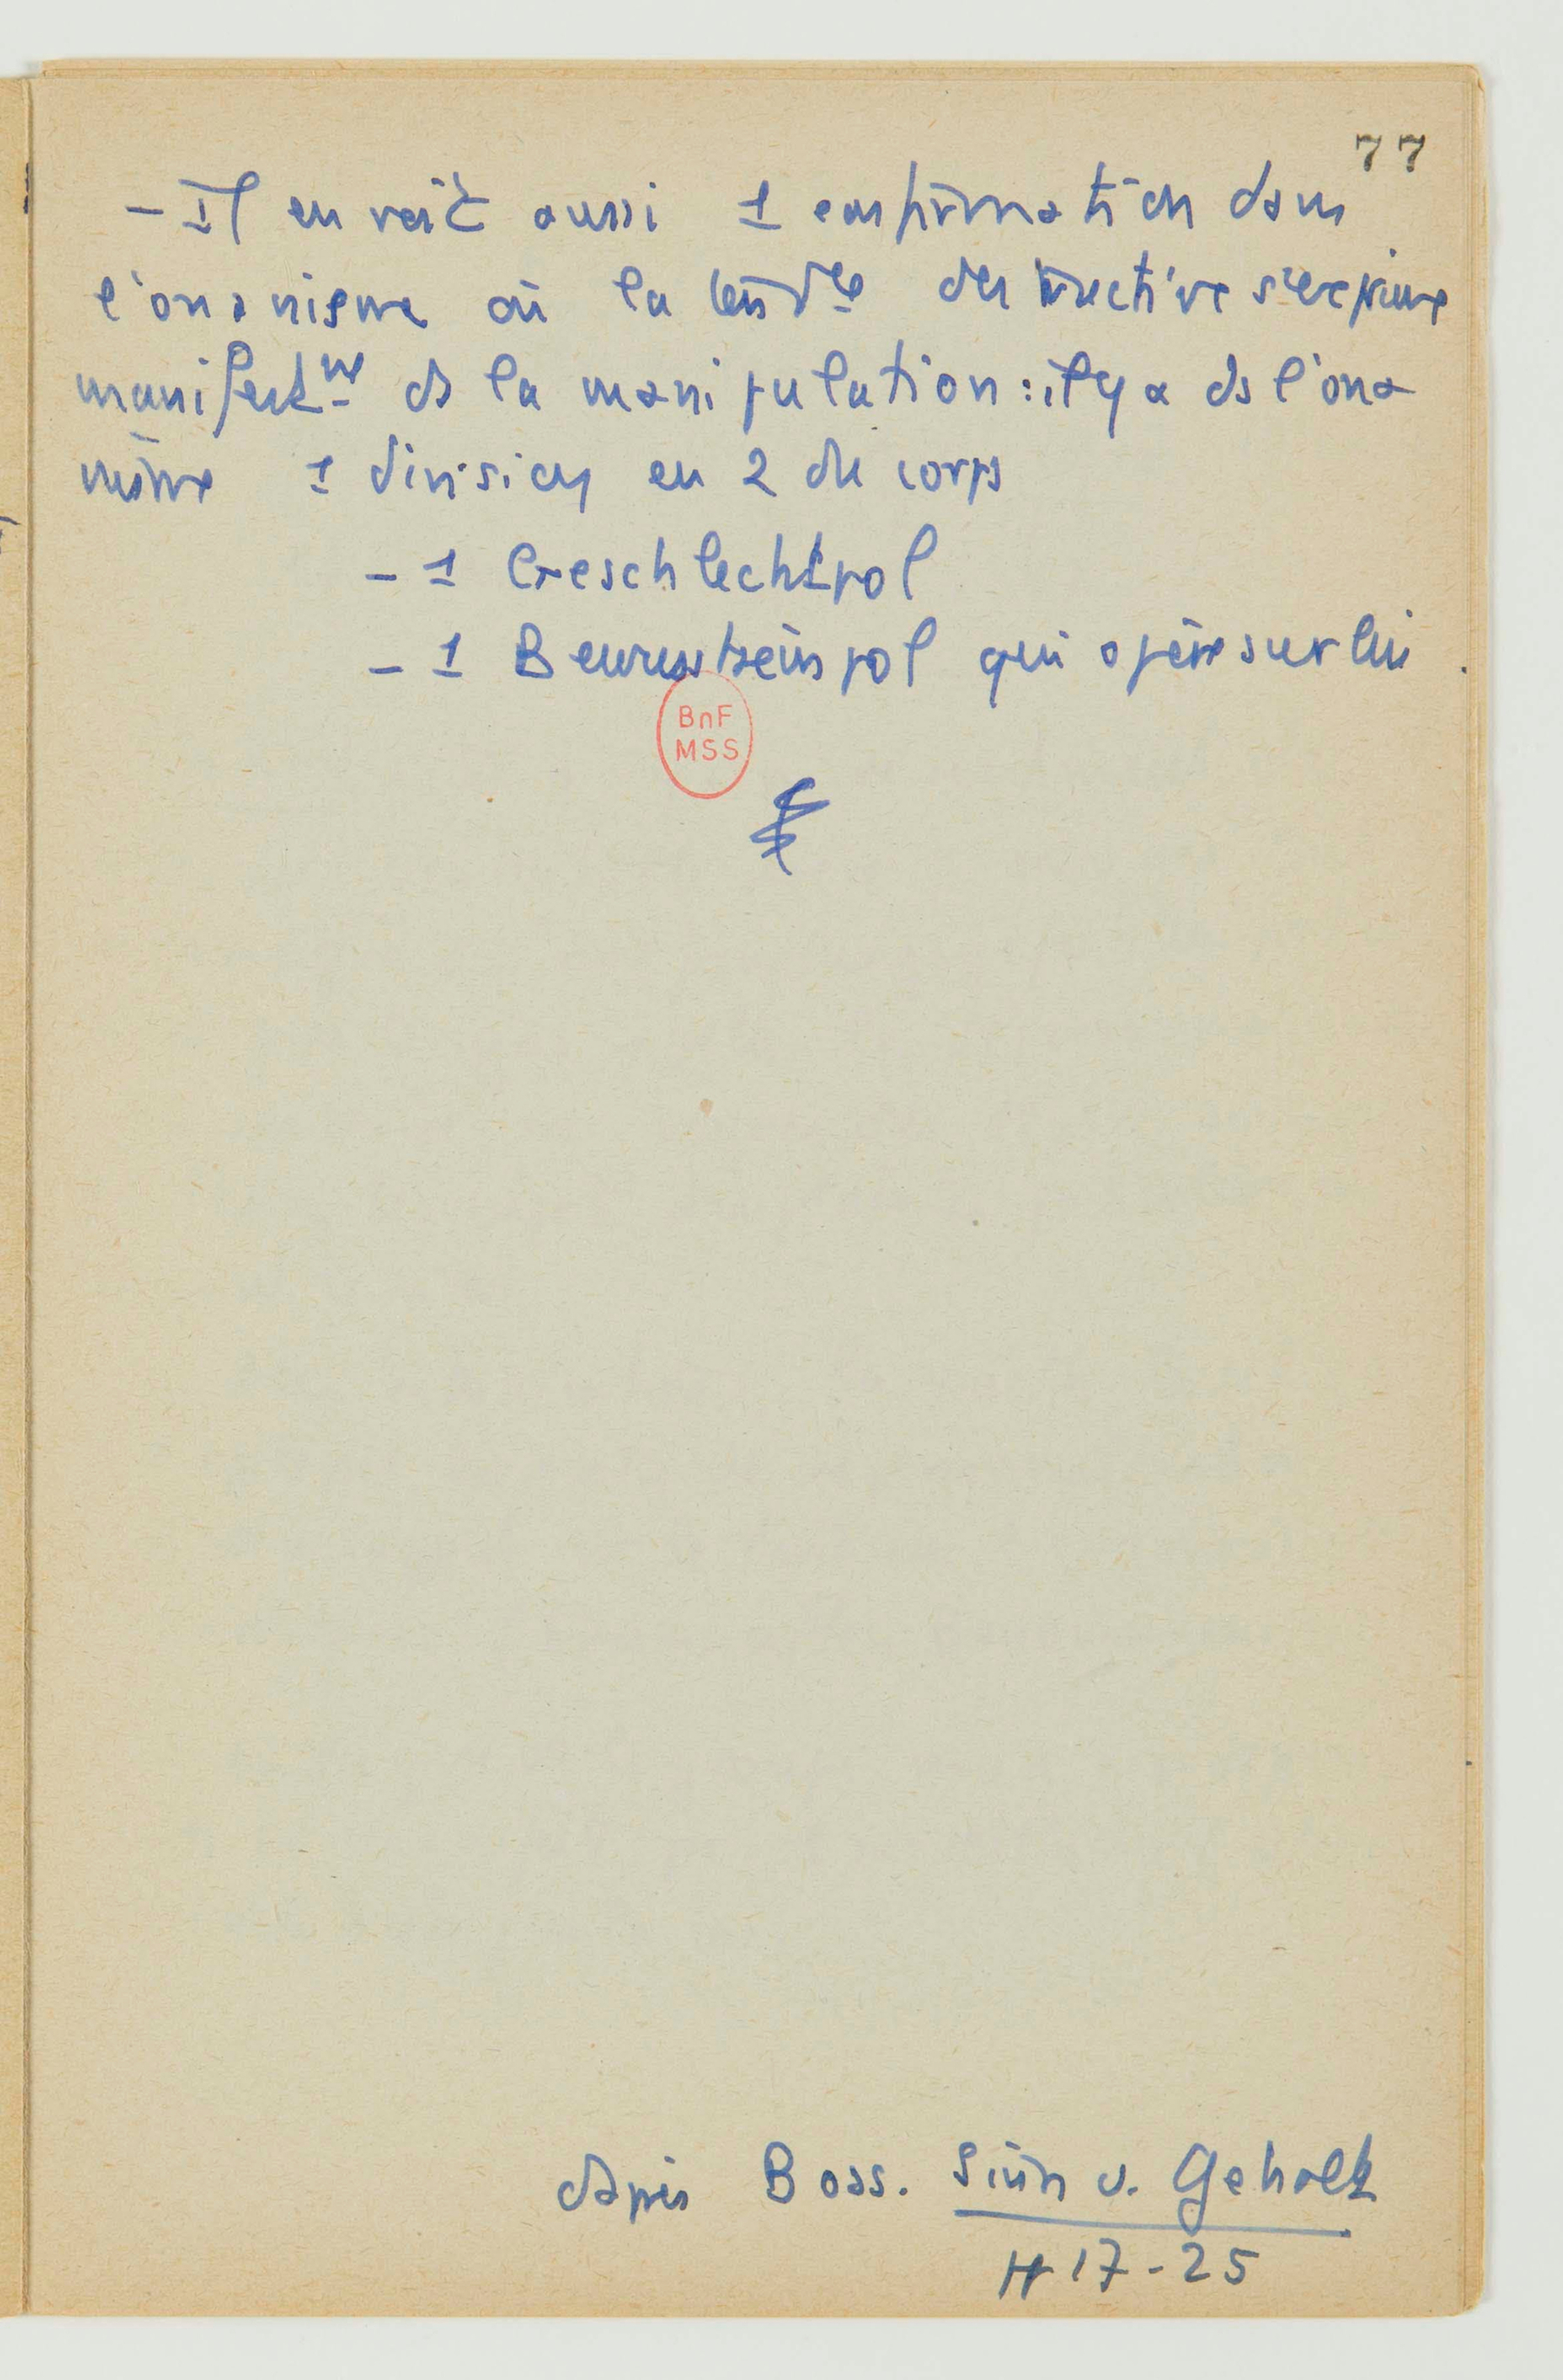 77
- Il en voit aussi 1 confirmation dans
l'onanisme où la tendce destructive s'exprime
manifestmt ds la manipulation : il y a ds l'ona
nisme 1 division en 2 du corps
- 1 Geschlechtspol
- 1 Bewusstseinspol qui opère sur lui.
BnF
MSS
d'après Boss. Sinn u. Gehalt
17-25